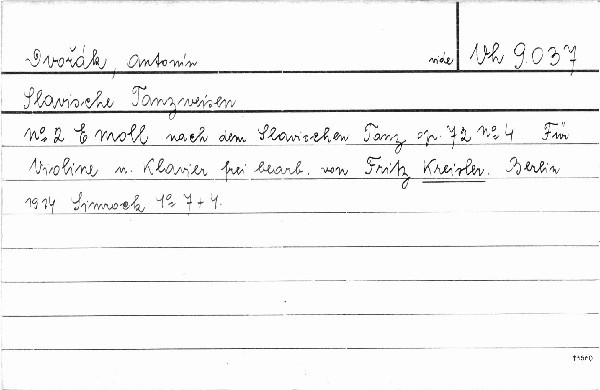 Dvořák, Antonín Vh 9.037
Slavische Tanzweisen
No 2 E moll nach dem Slavischen Tanz op. 72 No 4 Für
Violine u. Klavier frei bearb. von Fritz Kreisler. Berlin
1914 Simrock 4o 7+4.